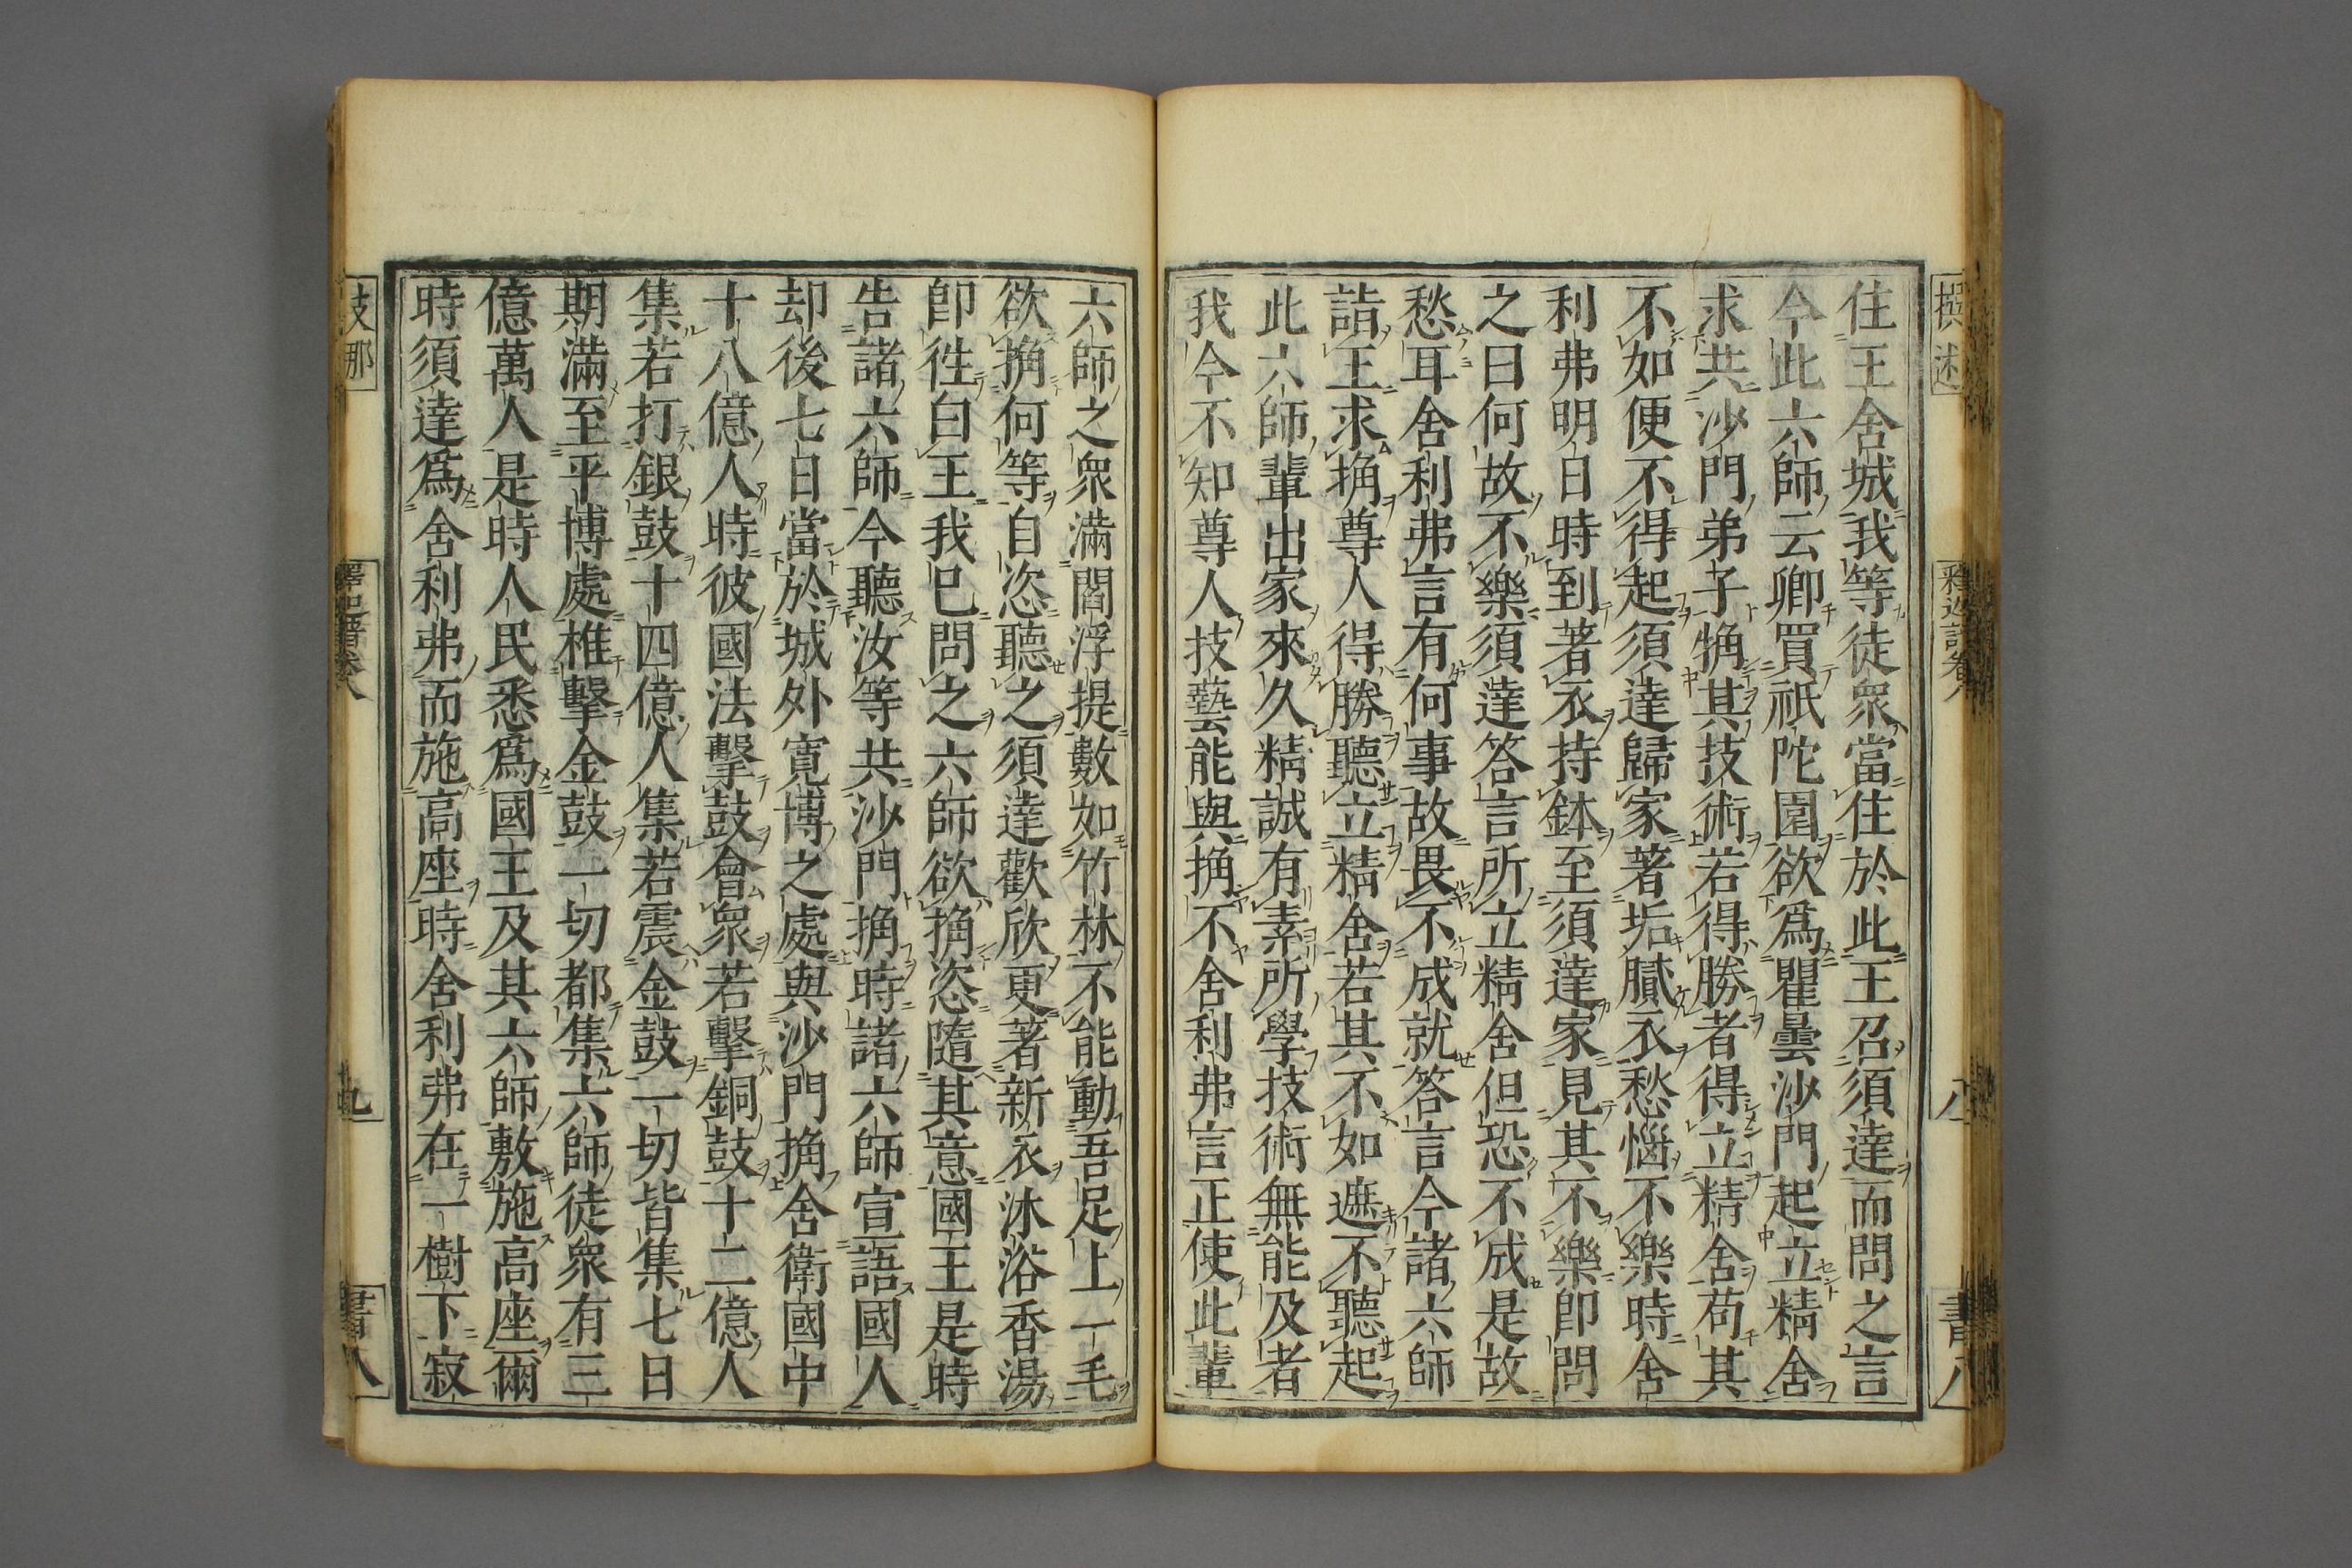 住王舍城我等徒衆當住於此王召須達而問之言
今此六師云卿買祇陀園欲爲瞿曇沙門起立精舍
求共沙門弟子捔其技術若得勝者得立精舍苟其
不如便不得起須達歸家著垢膩衣愁惱不樂時舍
利弗明日時到著衣持鉢至須達家見其不樂卽問
之曰何故不樂須達答言所立精舍但恐不成是故
愁耳舍利弗言有何事故畏不成就答言今諸六師
詣王求捔尊人得勝聽立精舍若其不如遮不聽起
此六師輩出家來久精誠有素所學技術無能及者
我今不知尊人技藝能與捔不舍利弗言正使此輩
六師之衆滿閻浮提數如竹林不能動吾足上一毛
欲捔何等自恣聽之須達歡欣更著新衣沐浴香湯
卽徃白王我已問之六師欲捔恣隨其意國王是時
告諸六師今聽汝等共沙門捔時諸六師宣語國人
却後七日當於城外寬博之處與沙門捔舍衛國中
十八億人時彼國法擊鼓會衆若擊銅鼓十二億人
集若打銀鼓十四億人集若震金鼓一切皆集七日
期滿至平博處椎擊金鼓一切都集六師徒衆有三
億萬人是時人民悉爲國王及其六師敷施高座爾
時須達爲舍利弗而施高座時舍利弗在一樹下寂